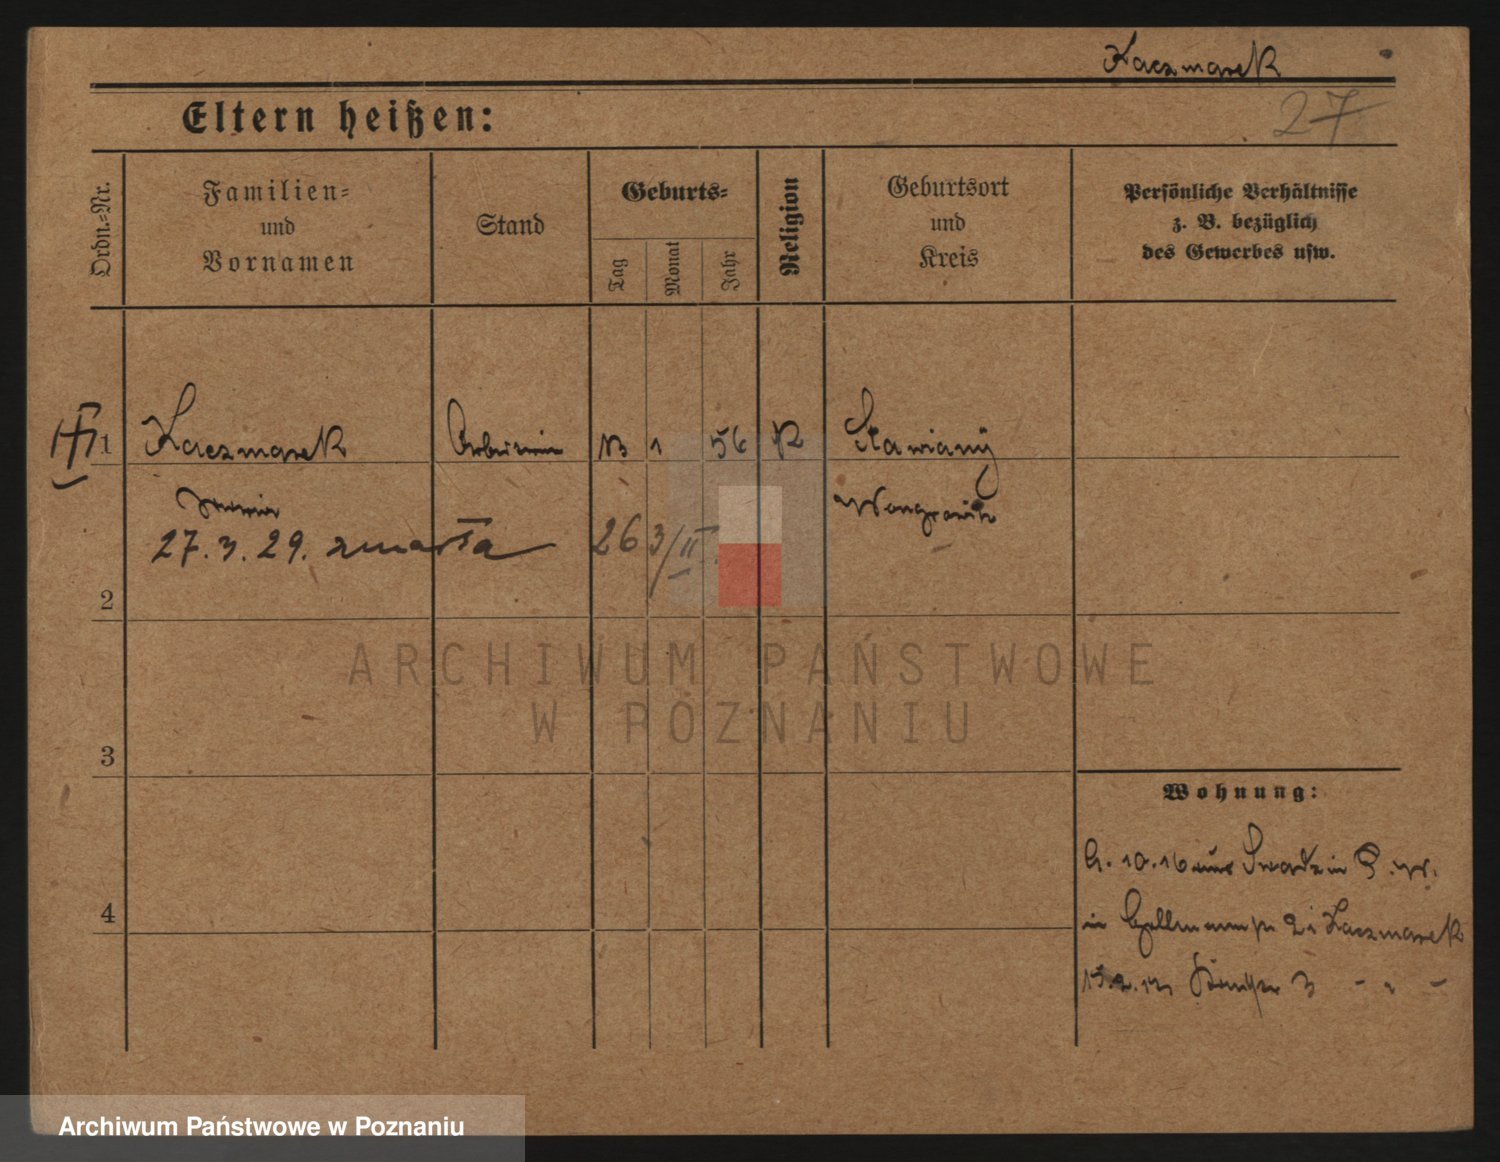 Kaczmarek
27
Eltern heißen:
Ordn.-Nr.
Familien- und Vornamen
Stand
Geburts-
Tag
Monat
Jahr
Religion
Geburtsort und Kreis
Persönliche Verhältnisse z. B. bezüglich des Gewerbes usw.
1 Kaczmarek 1 56 K Stawiany
Wongrowitz
27. 3. 29. zmarła 26 3/II
2
3
4
Wohnung:
10.16 aus P. W.
in 2 i Kaczmarek
3 - " -
ARCHIWUM PAŃSTWOWE
W POZNANIU
Archiwum Państwowe w Poznaniu